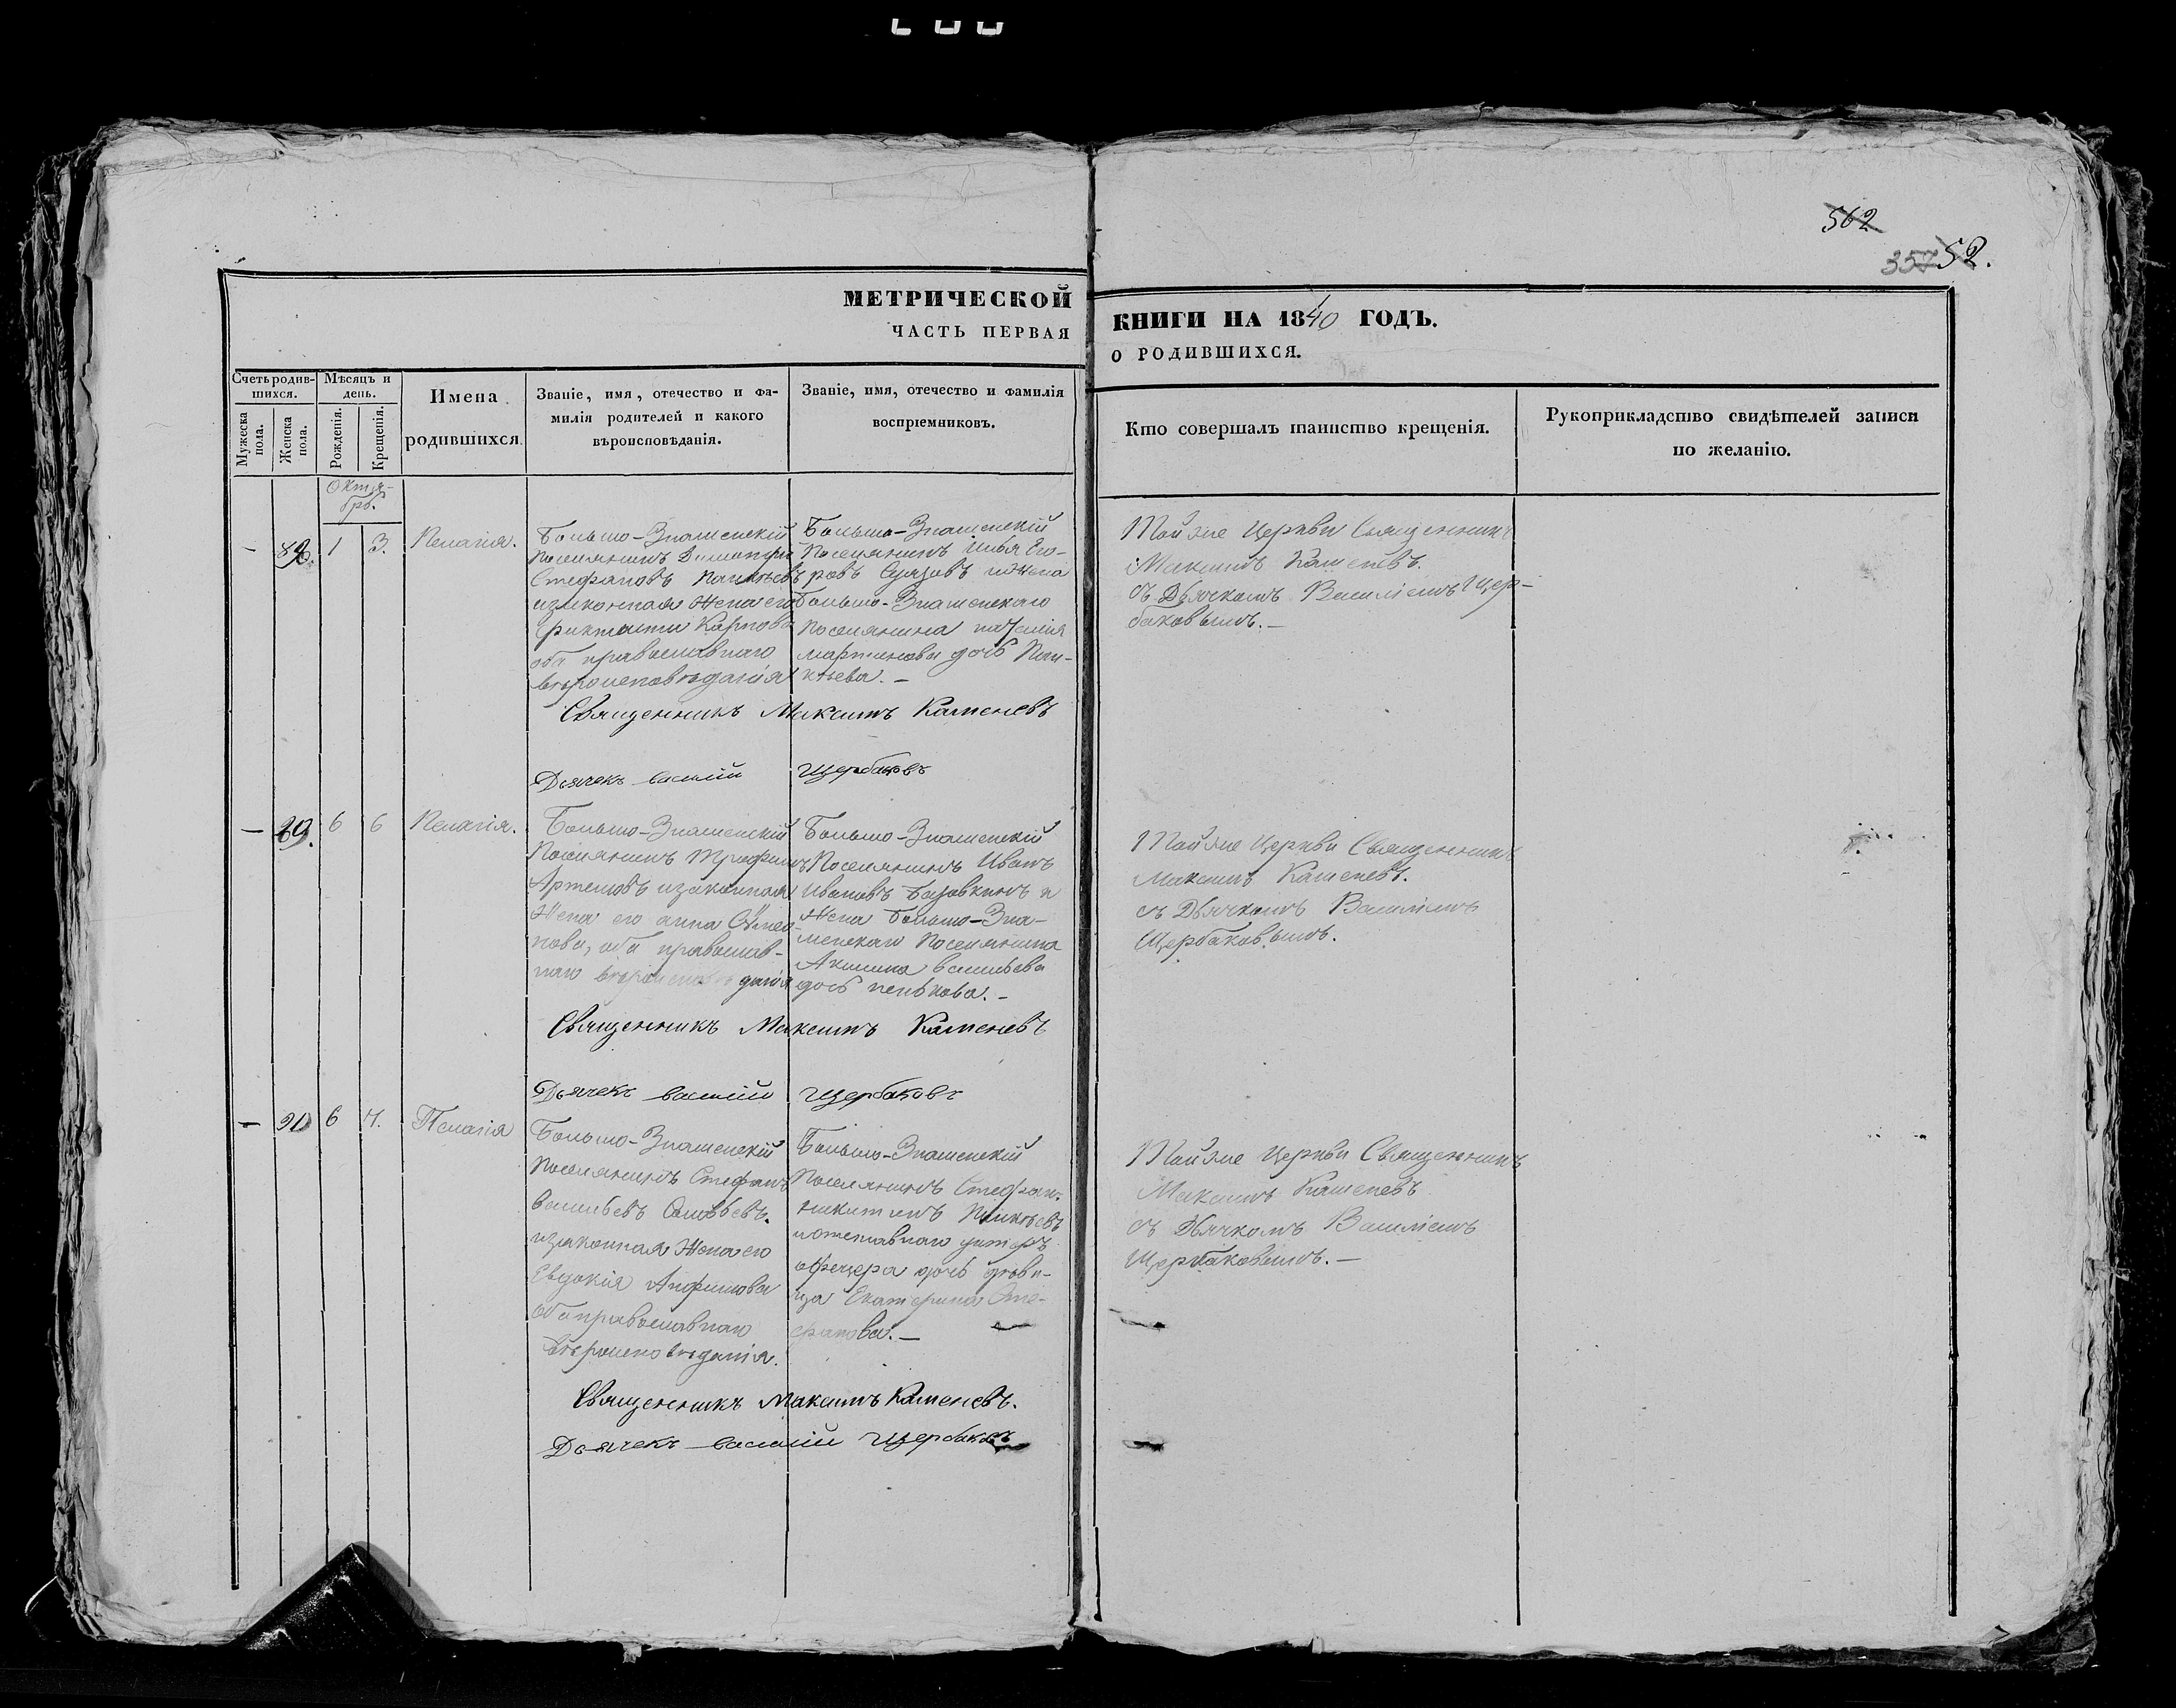 562
357 52.
МЕТРИЧЕСКОЙ КНИГИ НА 1840 ГОДЪ.
ЧАСТЬ ПЕРВАЯ О РОДИВШИХСЯ.
Счетъ родив-
шихся.
Мужеска
пола.
Женска
пола.
Мѣсяцъ и
день.
Рожденія.
Крещенія.
Имена
родившихся.
Званіе, имя, отечество и фа-
милія родителей и какого
вѣроисповѣданія.
Званіе, имя, отечество и фамилія
воспріемниковъ.
Кто совершалъ таинство крещенія.
Рукоприкладство свидѣтелей записи
по желанію.
Октя-
брь.
—
1
3.
Пелагія.
Больше-Знаменскій
Поселянинъ Димитрій
Стефановъ
изаконная Жена его
Карпова
оба православнаго
вѣроисповѣданія
Больше-Знаменскій
Поселянинъ Илья Его-
ровъ иЖена
Больше-Знаменскаго
Поселянина
мартинова дочь Пои-
кѣева. —
Той же Церкви Священникъ
Максимъ Каменевъ.
съ Дьячкомъ Василіемъ Щер-
баковымъ. —
Священникъ Максимъ Каменевъ
Дьячекъ василій Щербаковъ
—
89.
6
6
Пелагія.
Больше-Знаменскій
Поселянинъ Трофимъ
Артемовъ изаконная
Жена его анна
нова, оба православ-
наго вѣроисповѣданія
Больше-Знаменскій
Поселянинъ Иванъ
Ивановъ и
Жена Больше-Зна-
менскаго Поселянина
Акилина васильева
дочь пенькова. —
Той же Церкви Священникъ
Максимъ Каменевъ.
съ Дьячкомъ Василіемъ
Щербаковымъ.
Священникъ Максимъ Каменевъ
Дьячекъ василій Щербаковъ
—
90
6
7.
Пелагія
Больше-Знаменскій
Поселянинъ Стефанъ
васильевъ Соловьевъ.
изаконная Жена его
Евдокія Анфимова
оба православнаго
вѣроисповѣданія.
Больше-Знаменскій
Поселянинъ Стефан.
никитинъ Поикѣевъ
иотставнаго унтеръ
офецера дочь дѣви-
ца Екатерина Сте-
фанова. —
Той же Церкви Священникъ
Максимъ Каменевъ
съ Дьячкомъ Василіемъ
Щербаковымъ. —
Священникъ Максимъ Каменевъ.
Дьячекъ василій Щербаковъ